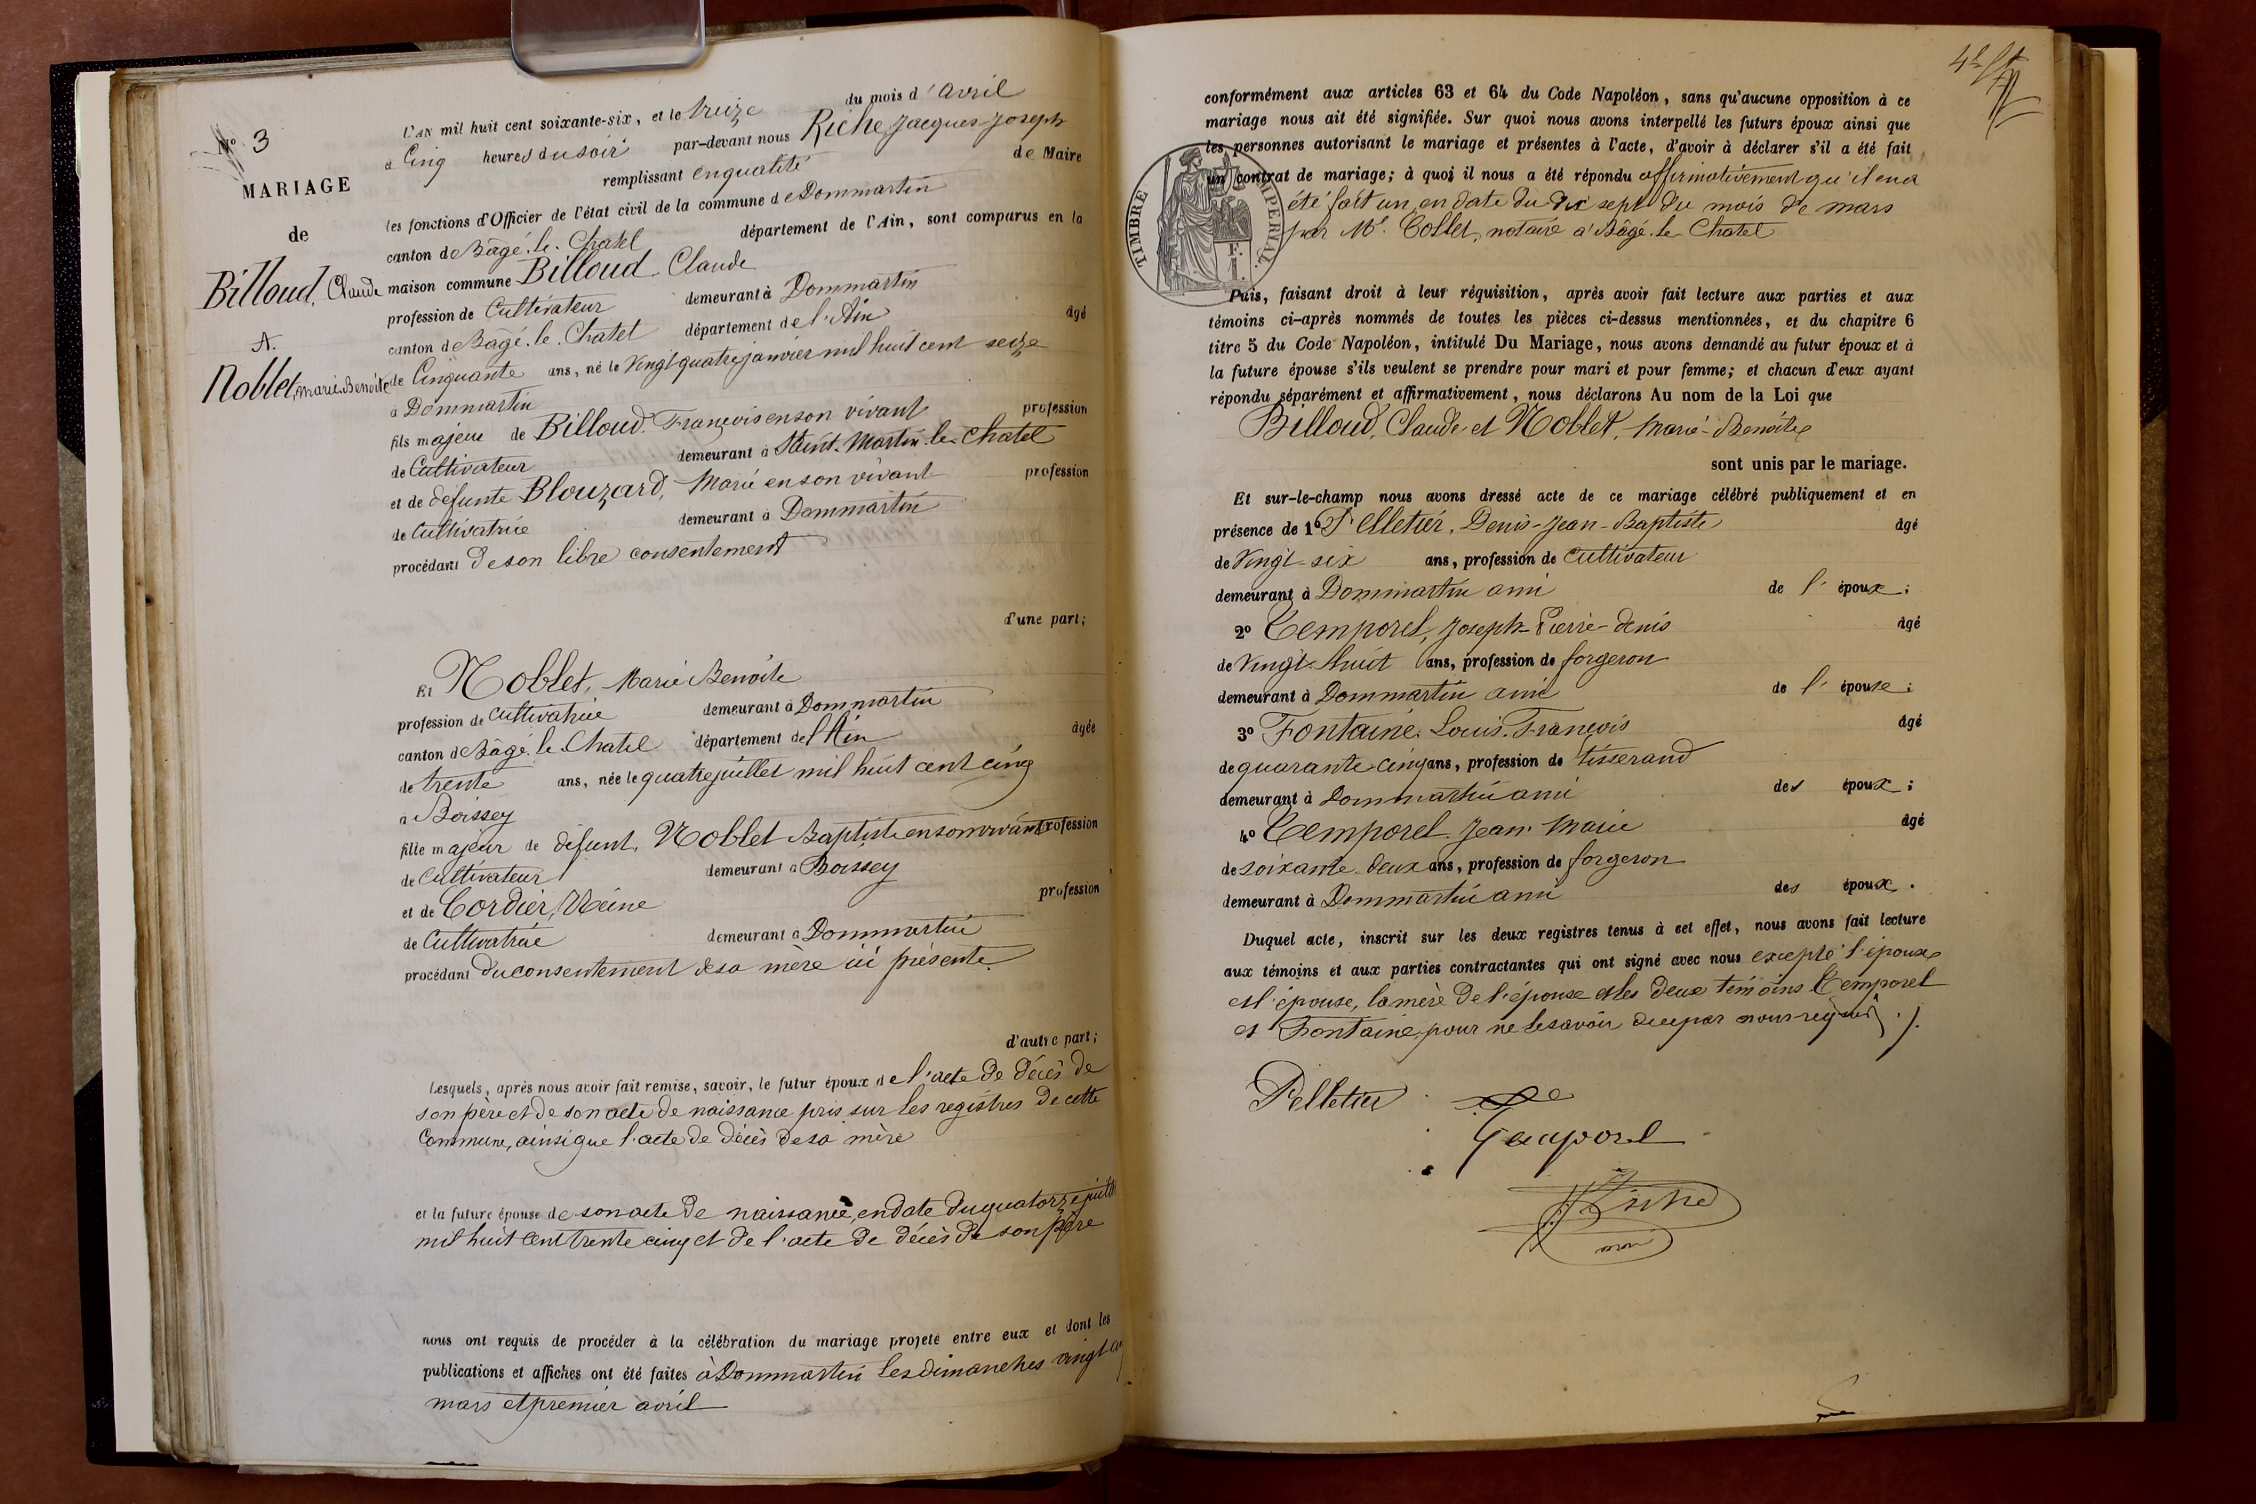 N° 3
MARIAGE
de
Billoud, Claude
A.
Noblet, marie-Benoite
L'AN mil huit cent soixante-six, et le treize du mois d'avril
à Cinq heures du soir par-devant nous Riche, Jacques Joseph
remplissant en qualité de Maire
les fonctions d'Officier de l'état civil de la commune de Dommartin
canton de Bâgé-le-Chatel département de l'Ain, sont comparus en la
maison commune Billoud Claude
profession de Cultivateur demeurant à Dommartin
canton de Bâgé-le-Chatel département de l'Ain âgé
de Cinquante ans, né le Vingt quatre janvier mil huit cent seize
à Dommartin
fils majeur de Billoud François en son vivant profession
de Cultivateur demeurant à Saint-Martin-le-Chatel
et de defunte Blouzard, Marie en son vivant profession
de Cultivatrice demeurant à Dommartin
procédant de son libre consentement
d'une part;
Et Noblet, Marie Benoite
profession de Cultivatrice demeurant à Dommartin
canton de Bâgé-le-Chatel département de l'Ain âgée
de trente ans, née le quatre juillet mil huit cent cinq
à Boissey
fille majeur de défunt, Noblet Baptiste en son vivant profession
de Cultivateur demeurant à Boissey
et de Cordier, Reine profession
de Cultivatrice demeurant à Dommartin
procédant du consentement de sa mère ici présente
d'autre part;
Lesquels, après nous avoir fait remise, savoir, le futur époux de l'acte de décès de
son père et de son acte de naissance pris sur les registres de cette
Commune, ainsi que l'acte de décès de sa mère
et la future épouse de son acte de naissance, en date du quatorze
mil huit cent trente cinq et de l'acte de décès de son père
nous ont requis de procéder à la célébration du mariage projeté entre eux et dont les
publications et affiches ont été faites à Dommartin les dimanches vingt
mars et premier avril
conformément aux articles 63 et 64 du Code Napoléon, sans qu'aucune opposition à ce
mariage nous ait été signifiée. Sur quoi nous avons interpellé les futurs époux ainsi que
les personnes autorisant le mariage et présentes à l'acte, d'avoir à déclarer s'il a été fait
un contrat de mariage; à quoi il nous a été répondu affirmativement qu'il en a
été fait un, en date du dix sept du mois de mars
par Me Collet, notaire à Bâgé-le Chatel
TIMBRE IMPERIAL
Puis, faisant droit à leur réquisition, après avoir fait lecture aux parties et aux
témoins ci-après nommés de toutes les pièces ci-dessus mentionnées, et du chapitre 6
titre 5 du Code Napoléon, intitulé Du Mariage, nous avons demandé au futur époux et à
la future épouse s'ils veulent se prendre pour mari et pour femme; et chacun d'eux ayant
répondu séparément et affirmativement, nous déclarons Au nom de la Loi que
Billoud, Claude et Noblet, Marie-Benoite
sont unis par le mariage.
Et sur-le-champ nous avons dressé acte de ce mariage célébré publiquement et en
présence de 1° Pelletier, Denis-Jean-Baptiste âgé
de Vingt-six ans, profession de Cultivateur
demeurant à Dommartin ami de l'époux;
2° Temporel, Joseph-Pierre-denis âgé
de Vingt-huit ans, profession de forgeron
demeurant à Dommartin ami de l'épouse;
3° Fontaine, Louis-François âgé
de quarante cinq ans, profession de tisserand
demeurant à Dommartin ami des époux;
4° Temporel Jean-Marie âgé
de soixante-deux ans, profession de forgeron
demeurant à Dommartin ami des époux.
Duquel acte, inscrit sur les deux registres tenus à cet effet, nous avons fait lecture
aux témoins et aux parties contractantes qui ont signé avec nous excepté l'époux
et l'épouse, la mère de l'épouse et les deux témoins Temporel
et Fontaine pour ne le savoir de ce par nous requis
Pelletier
Temporel
Riche